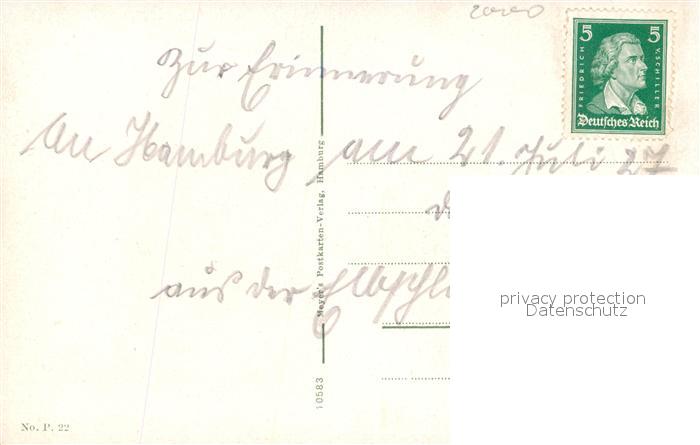 5 5
FRIEDRICH V. SCHILLER
Deutsches Reich
Zur Erinnerung
An Hamburg, am 21. Juli 27
aus der
Meyer's Postkarten-Verlag, Hamburg
10583
No. P. 22
privacy protection
Datenschutz